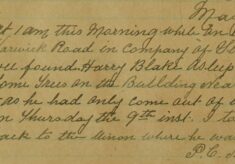 May
t. 1 am this Morning while on
arwick Road in company of Se
ee found Harry Blake asleep
ome Trees on the Building Nea
as he had only come out of
n Thursday the 9th inst. I to
ack to the Union where he wa
P.C.